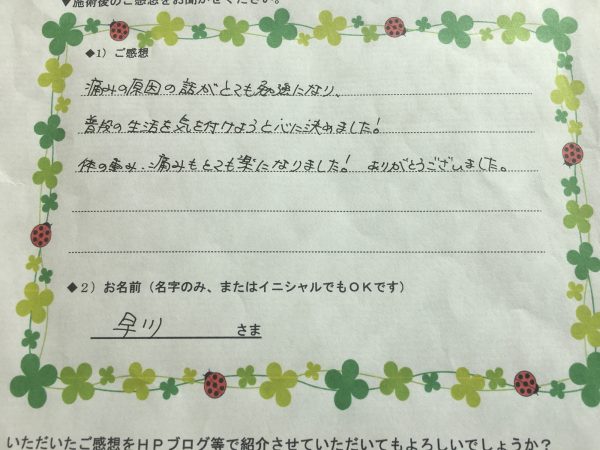 ▼施術後のご感想をお聞かせください。
◆1）ご感想
痛みの原因の話がとても勉強になり、
普段の生活を気を付けようと心に決めました!
体の重み、痛みもとても楽になりました! ありがとうございました。
◆2）お名前（名字のみ、またはイニシャルでもＯＫです）
早川 さま
いただいたご感想をＨＰブログ等で紹介させていただいてもよろしいでしょうか？